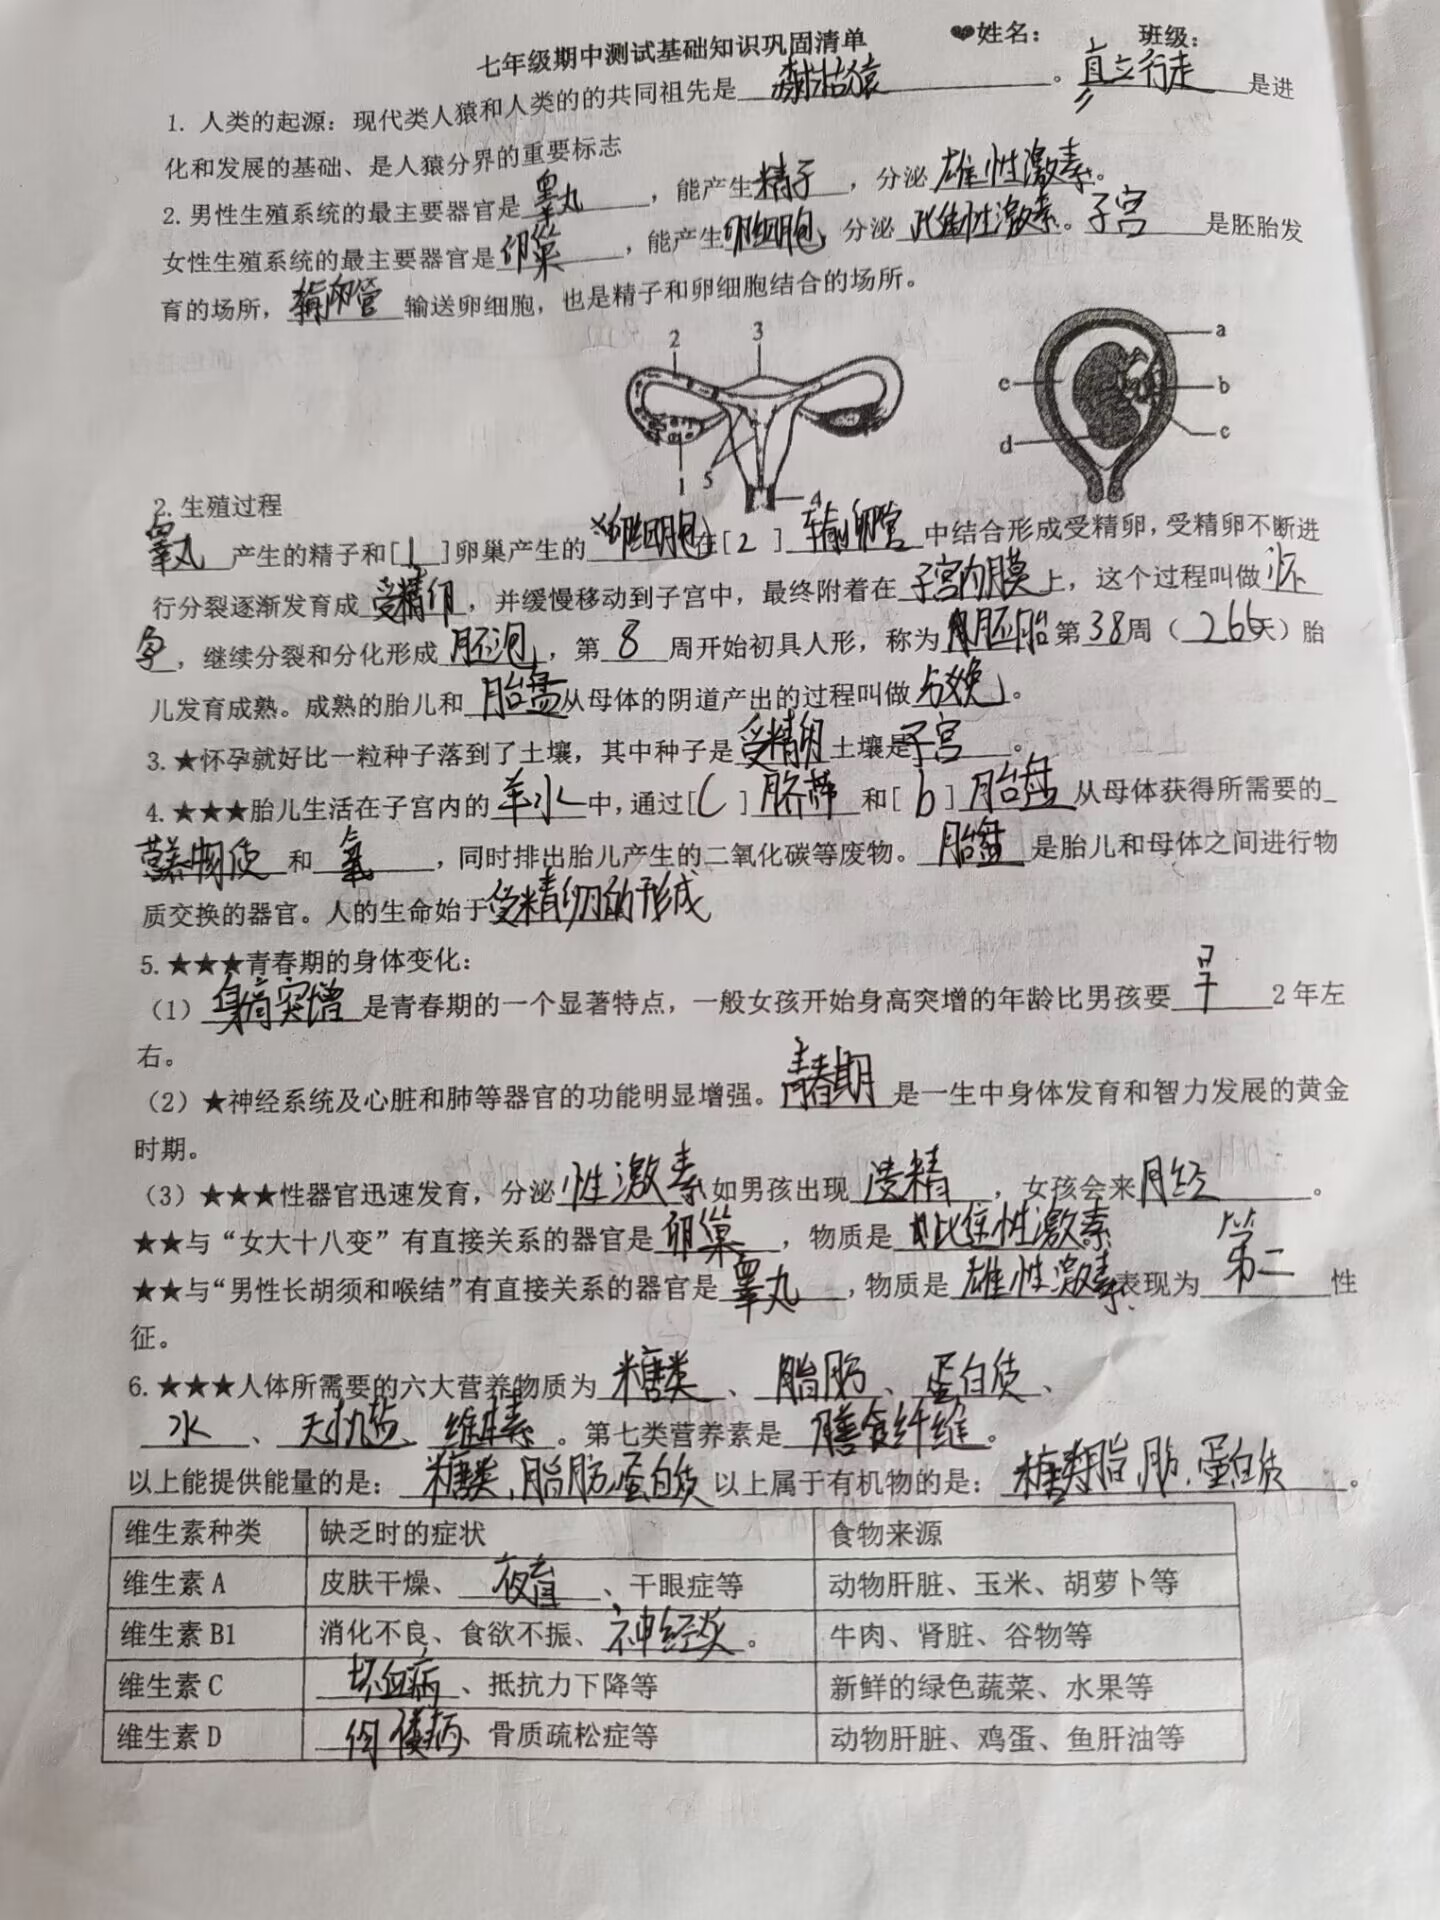 七年级期中测试基础知识巩固清单 ❤姓名： 班级：
1. 人类的起源：现代类人猿和人类的的共同祖先是森林古猿。直立行走是进
化和发展的基础、是人猿分界的重要标志
2. 男性生殖系统的最主要器官是睾丸，能产生精子，分泌雄性激素。
女性生殖系统的最主要器官是卵巢，能产生卵细胞，分泌雌性激素。子宫是胚胎发
育的场所，输卵管输送卵细胞，也是精子和卵细胞结合的场所。
2 3 1 5 4
a e b c d
2. 生殖过程
睾丸产生的精子和[1]卵巢产生的卵细胞在[2]输卵管中结合形成受精卵，受精卵不断进
行分裂逐渐发育成受精卵，并缓慢移动到子宫中，最终附着在子宫内膜上，这个过程叫做怀
孕，继续分裂和分化形成胚泡，第8周开始初具人形，称为胚胎第38周（266天）胎
儿发育成熟。成熟的胎儿和胎盘从母体的阴道产出的过程叫做分娩。
3. ★怀孕就好比一粒种子落到了土壤，其中种子是受精卵土壤是子宫。
4. ★★★胎儿生活在子宫内的羊水中，通过[C]脐带和[b]胎盘从母体获得所需要的
营养物质和氧，同时排出胎儿产生的二氧化碳等废物。胎盘是胎儿和母体之间进行物
质交换的器官。人的生命始于受精卵的形成
5. ★★★青春期的身体变化：
（1）身高突增是青春期的一个显著特点，一般女孩开始身高突增的年龄比男孩要早2年左
右。
（2）★神经系统及心脏和肺等器官的功能明显增强。青春期是一生中身体发育和智力发展的黄金
时期。
（3）★★★性器官迅速发育，分泌性激素如男孩出现遗精，女孩会来月经。
★★与“女大十八变”有直接关系的器官是卵巢，物质是雌性激素
★★与“男性长胡须和喉结”有直接关系的器官是睾丸，物质是雄性激素表现为第二性
征。
6. ★★★人体所需要的六大营养物质为糖类、脂肪、蛋白质、
水、无机盐、维生素。第七类营养素是膳食纤维。
以上能提供能量的是：糖类、脂肪、蛋白质以上属于有机物的是：糖类、脂肪、蛋白质。
维生素种类 缺乏时的症状 食物来源
维生素 A 皮肤干燥、夜盲、干眼症等 动物肝脏、玉米、胡萝卜等
维生素 B1 消化不良、食欲不振、神经炎。 牛肉、肾脏、谷物等
维生素 C 坏血病、抵抗力下降等 新鲜的绿色蔬菜、水果等
维生素 D 佝偻病、骨质疏松症等 动物肝脏、鸡蛋、鱼肝油等